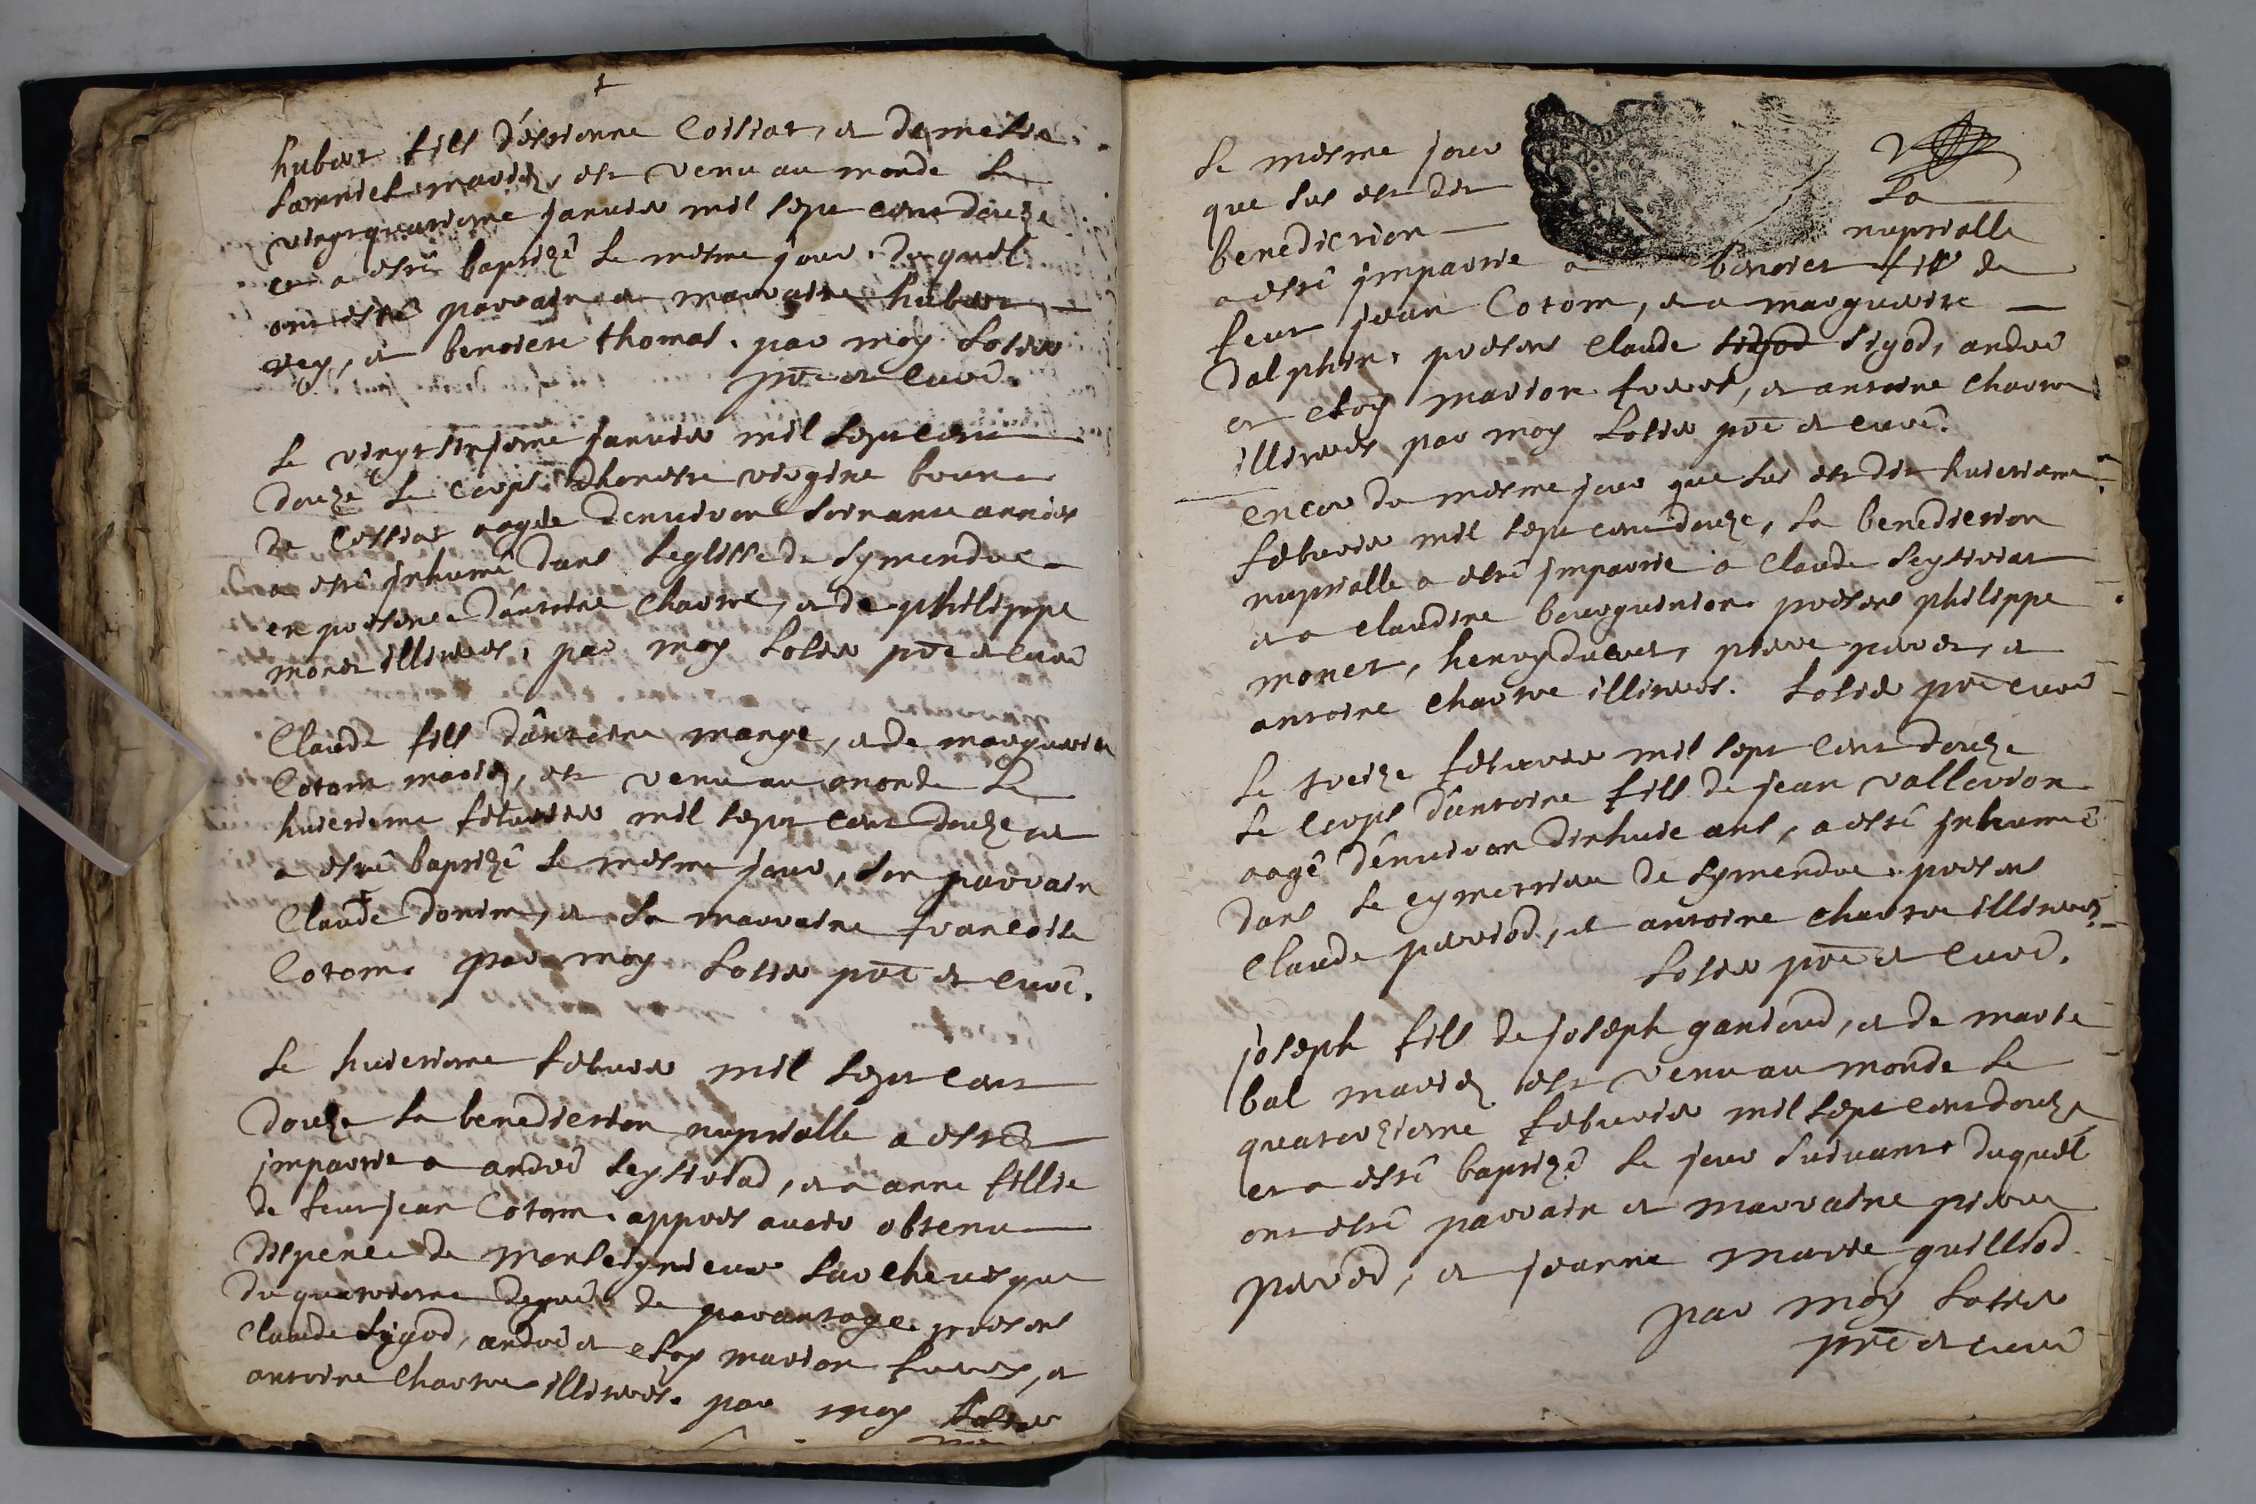 hubert fils d'estienne Coisiat, et de
mariez, est venu au monde le
vingtquatrieme janvier mil sept cent douze
et a esté baptizé le mesme jour, duquel
ont esté parrain et marraine hubert
rey, et benoiste thomas, par moy
pre et curé.
le vingt sixieme janvier mil sept cent
douze le corps d'honeste virgine
de Cossiat aagée denuiron soixante années
a esté inhumé dans leglisse de symendre
en presence d'antoine Chartre, et de philippe
monet illiterés, par moy pre et curé
Claude fils d'antoine mange, et de marguerite
Cotom mariez, est venu au monde le
huictieme februier mil sept cent douze et
a esté baptizé le mesme jour, son parrain
Claude donim, et sa marraine francoise
Cotom, par moy pre et curé.
le huictieme februier mil sept cent
douze la benediction nuptialle a esté
impartie a andré seystivad, et a anne fillie
de feu jean Cotom, appres auoir obtenu
dispence de monseignieur larcheuesque
du quatrieme degré de parantage. presens
Claude sigod, andré et eloy marion freres, et
antoine Chartre illiterés. par moy
le mesme jour
que sus est dit la
benediction nuptialle
a esté impartie a benoict fils de
feut jean Cotom, et a marguerite
dalphin, presens Claude sigod sigod, andré
et eloy marion freres, et antoine Chartre
illiterés par moy pre et curé.
encor du mesme jour que sus est dit huictieme
februier mil sept cent douze, la benediction
nuptialle a esté impartie a Claude seystiviat
et a Claudine bourguinion presens philippe
monet, henry , pierre pevet, et
antoine Chartre illiterés. pre curé
le treize februier mil sept cent douze
le corps d'antoine fils de jean vallerion
aagé d'enuiron dixhuict ans, a esté inhumé
dans le cymettiere de symendre. presens
Claude perriod, et antoine chartre illiterés.
pre et curé.
joseph fils de joseph gandoud, et de marie
bal mariez est venu au monde le
quatorzieme februier mil sept cent douze
et a esté baptizé le jour suivant duquel
ont esté parrain et marraine pierre
perod, et jeanne marie guilliod
par moy
pre et curé